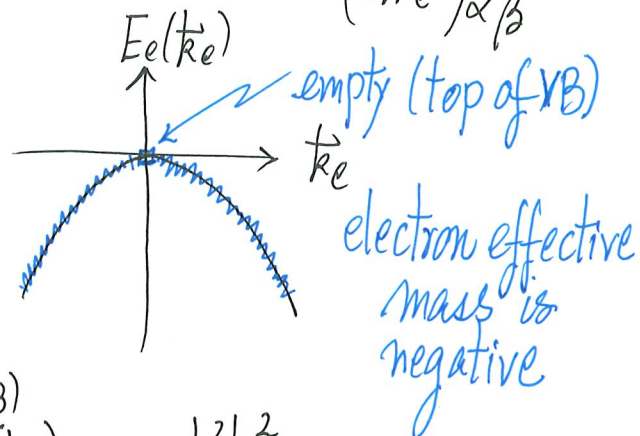 E_e(k⃗_e)
empty (top of VB)
k⃗_e
electron effective
mass is
negative